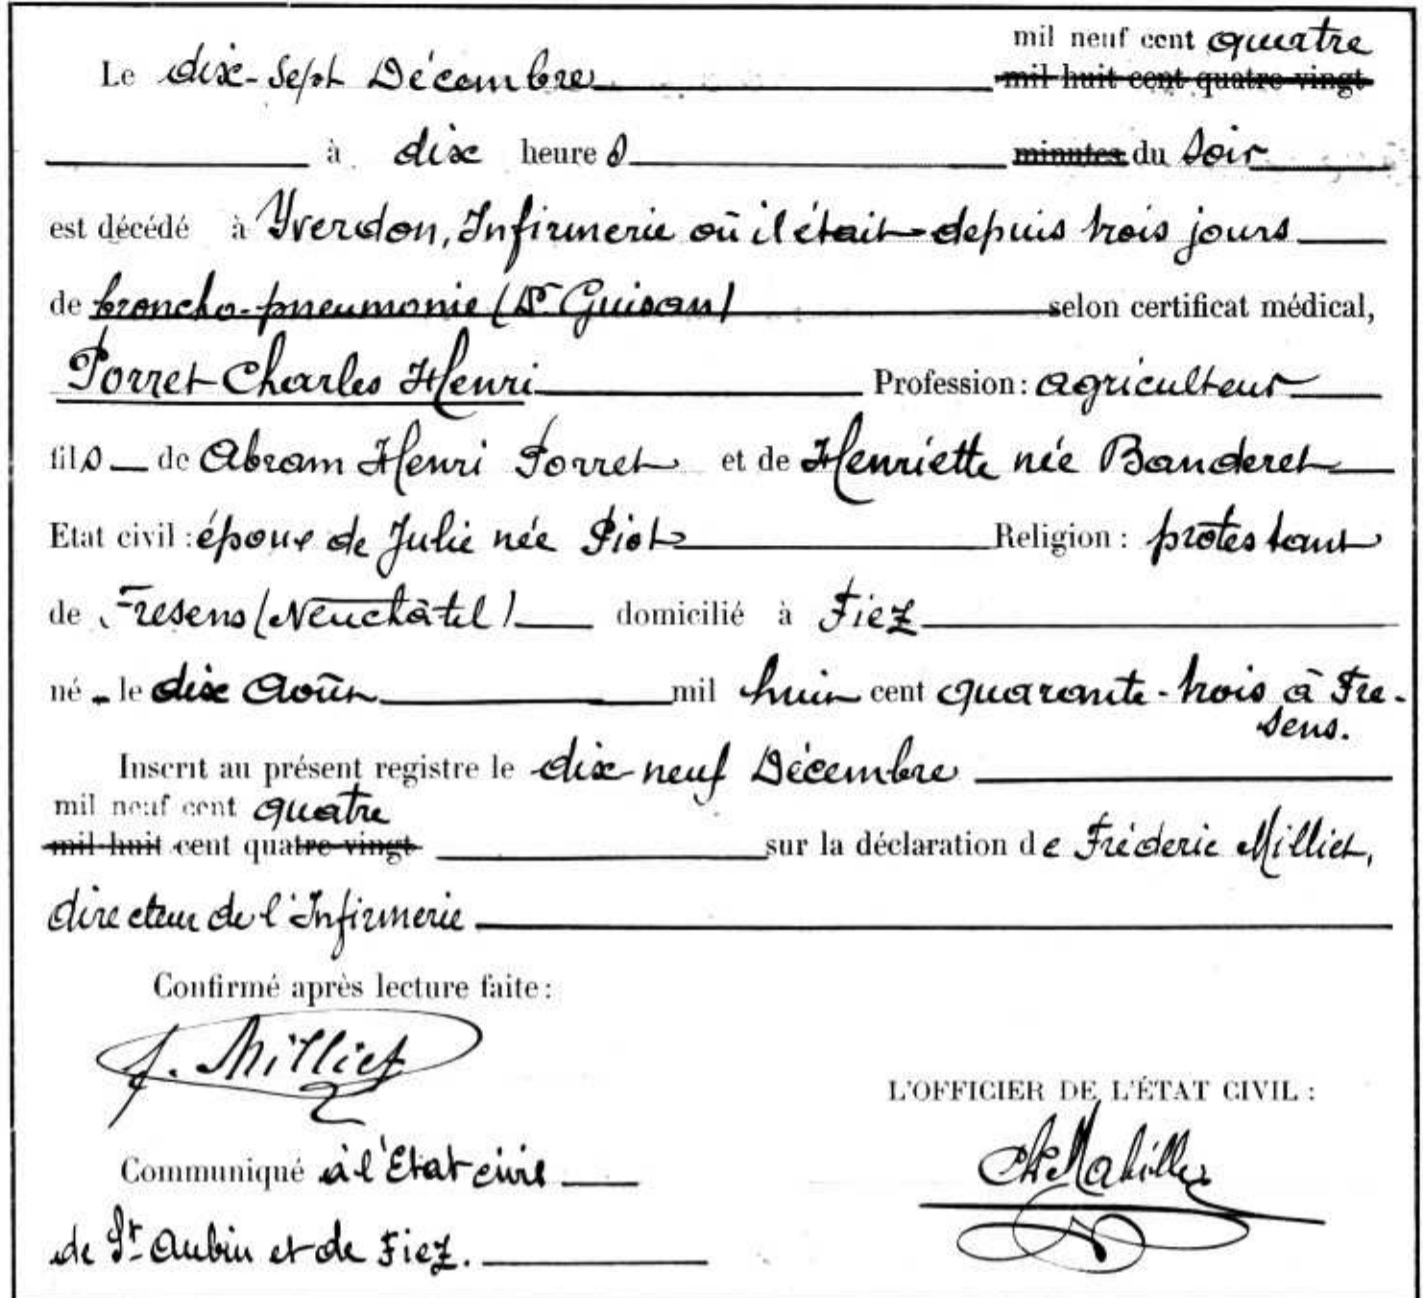 mil neuf cent quatre
Le dix-sept Décembre mil huit cent quatre-vingt
à dix heures minutes du soir
est décédé à Yverdon, Infirmerie où il était depuis trois jours
de broncho-pneumonie (Dr Guisan) selon certificat médical,
Porret Charles Henri Profession: agriculteur
fils de Abram Henri Porret et de Henriette née Banderet
Etat civil: époux de Julie née Piot Religion: protestant
de Fresens (Neuchâtel) domicilié à Fiez
né le dix Août mil huit cent quarante-trois à Fre-
sens.
Inscrit au présent registre le dix-neuf Décembre
mil neuf cent quatre
mil huit cent quatre-vingt sur la déclaration de Fréderic Milliet,
directeur de l'Infirmerie
Confirmé après lecture faite:
f. Milliet
L'OFFICIER DE L'ÉTAT CIVIL:
Communiqué à l'Etat civil
de St Aubin et de Fiez.